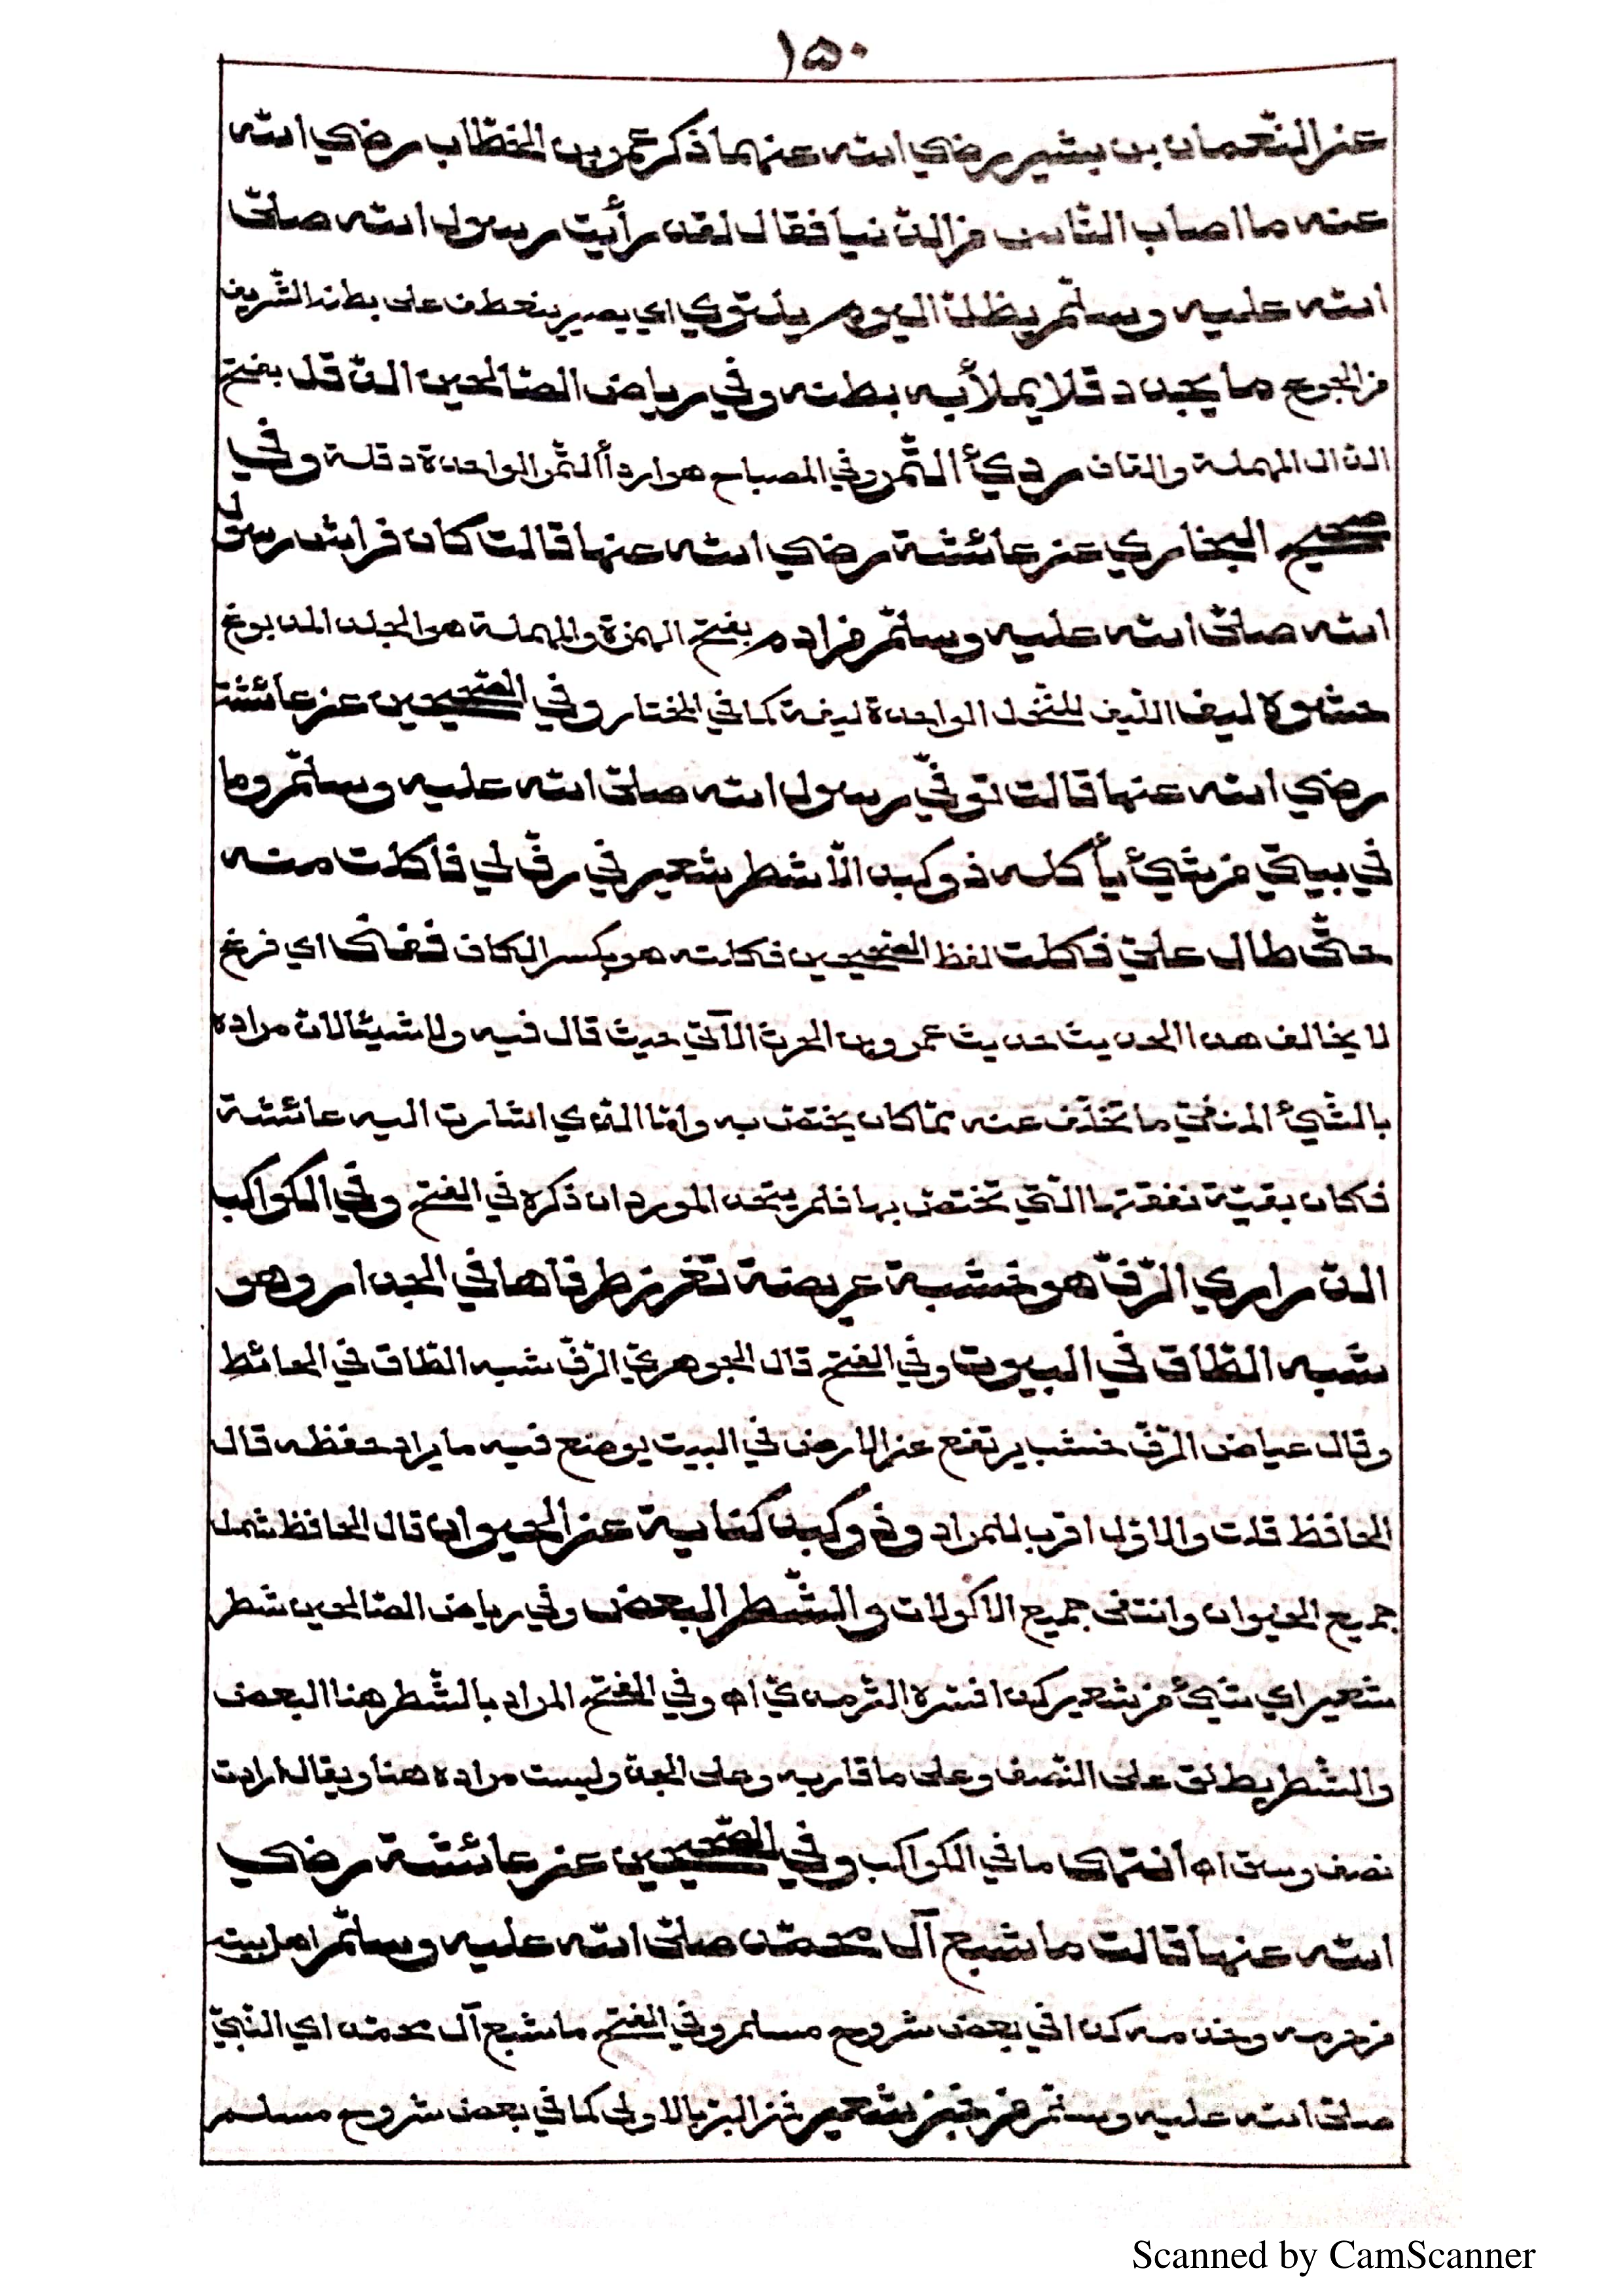 ١٥٠
عن النّعمان بن بشير رضي الله عنهما ذكر عمر بن الخطّاب رضي الله
عنه ما اصاب النّاس من الدّنيا فقال لقد رأيت رسول الله صلّى
الله عليه وسلّم يظلّ اليوم يلتوي اي يصير ينعطف على بطنه الشّريف
من الجوع ما يجد دقلا يملأ به بطنه وفي رياض الصّالحين الدّقل بفتح
الدّال المهملة والقاف رديّ التّمر وفي المصباح هو اردأ التّمر الواحدة دقلة وفي
صحيح البخاري عن عائشة رضي الله عنها قالت كان فراش رسول
الله صلّى الله عليه وسلّم من ادم بفتح الهمزة والمهملة هو الجلد المدبوغ
حشوه ليف اللّيف للنّخل الواحدة ليفة كما في المختار وفي الصّحيحين عن عائشة
رضي الله عنها قالت توفّي رسول الله صلّى الله عليه وسلّم وما
في بيتي من شيئ يأكله ذو كبد الّا شطر شعير في رفّ لي فاكلت منه
حتّى طال عليّ فكلت لفظ الصّحيحين فكلته هو بكسر الكاف ففنى اي فرغ
لا يخالف هذا الحديث حديث عمرو بن الحرث الآتي حيث قال فيه ولا شيئا لان مراده
بالشّيئ المنفيّ ما تخلّف عنه ممّا كان يختصّ به وامّا الّذي اشارت اليه عائشة
فكان بقيّة نفقتها الّتي تختصّ بها فلم يتّحد الموردان ذكره في الفتح وفي الكواكب
الدّراري الرّفّ هو خشبة عريضة تغرز طرفاها في الجدار وهو
شبه الطّاق في البيوت وفي الفتح قال الجوهريّ الرّفّ شبه الطّاق في الحائط
وقال عياض الرّفّ خشب يرتفع عن الارض في البيت يوضع فيه ما يراد حفظه قال
الحافظ قلت والاوّل اقرب للمراد وذو كبد كناية عن الحيوان قال الحافظ شمل
جميع الحيوان وانتفى جميع الاكولات والشّطر البعض وفي رياض الصّالحين شطر
شعير اي شيئ من شعير كذا فسّره التّرمذيّ اه وفي الفتح المراد بالشّطر هنا البعض
والشّطر يطلق على النّصف وعلى ما قاربه وعلى الجهة وليست مراده هنا ويقال ارادت
نصف وسق اه انتهى ما في الكواكب وفي الصّحيحين عن عائشة رضي
الله عنها قالت ما شبع آل محمّد صلّى الله عليه وسلّم اهل بيته
من حرمه وخدمه كذا في بعض شروح مسلم وفي الفتح ما شبع آل محمّد اي النّبيّ
صلّى الله عليه وسلّم من خبز شعير فمن البرّ بالاولى كما في بعض شروح مسلم
Scanned by CamScanner